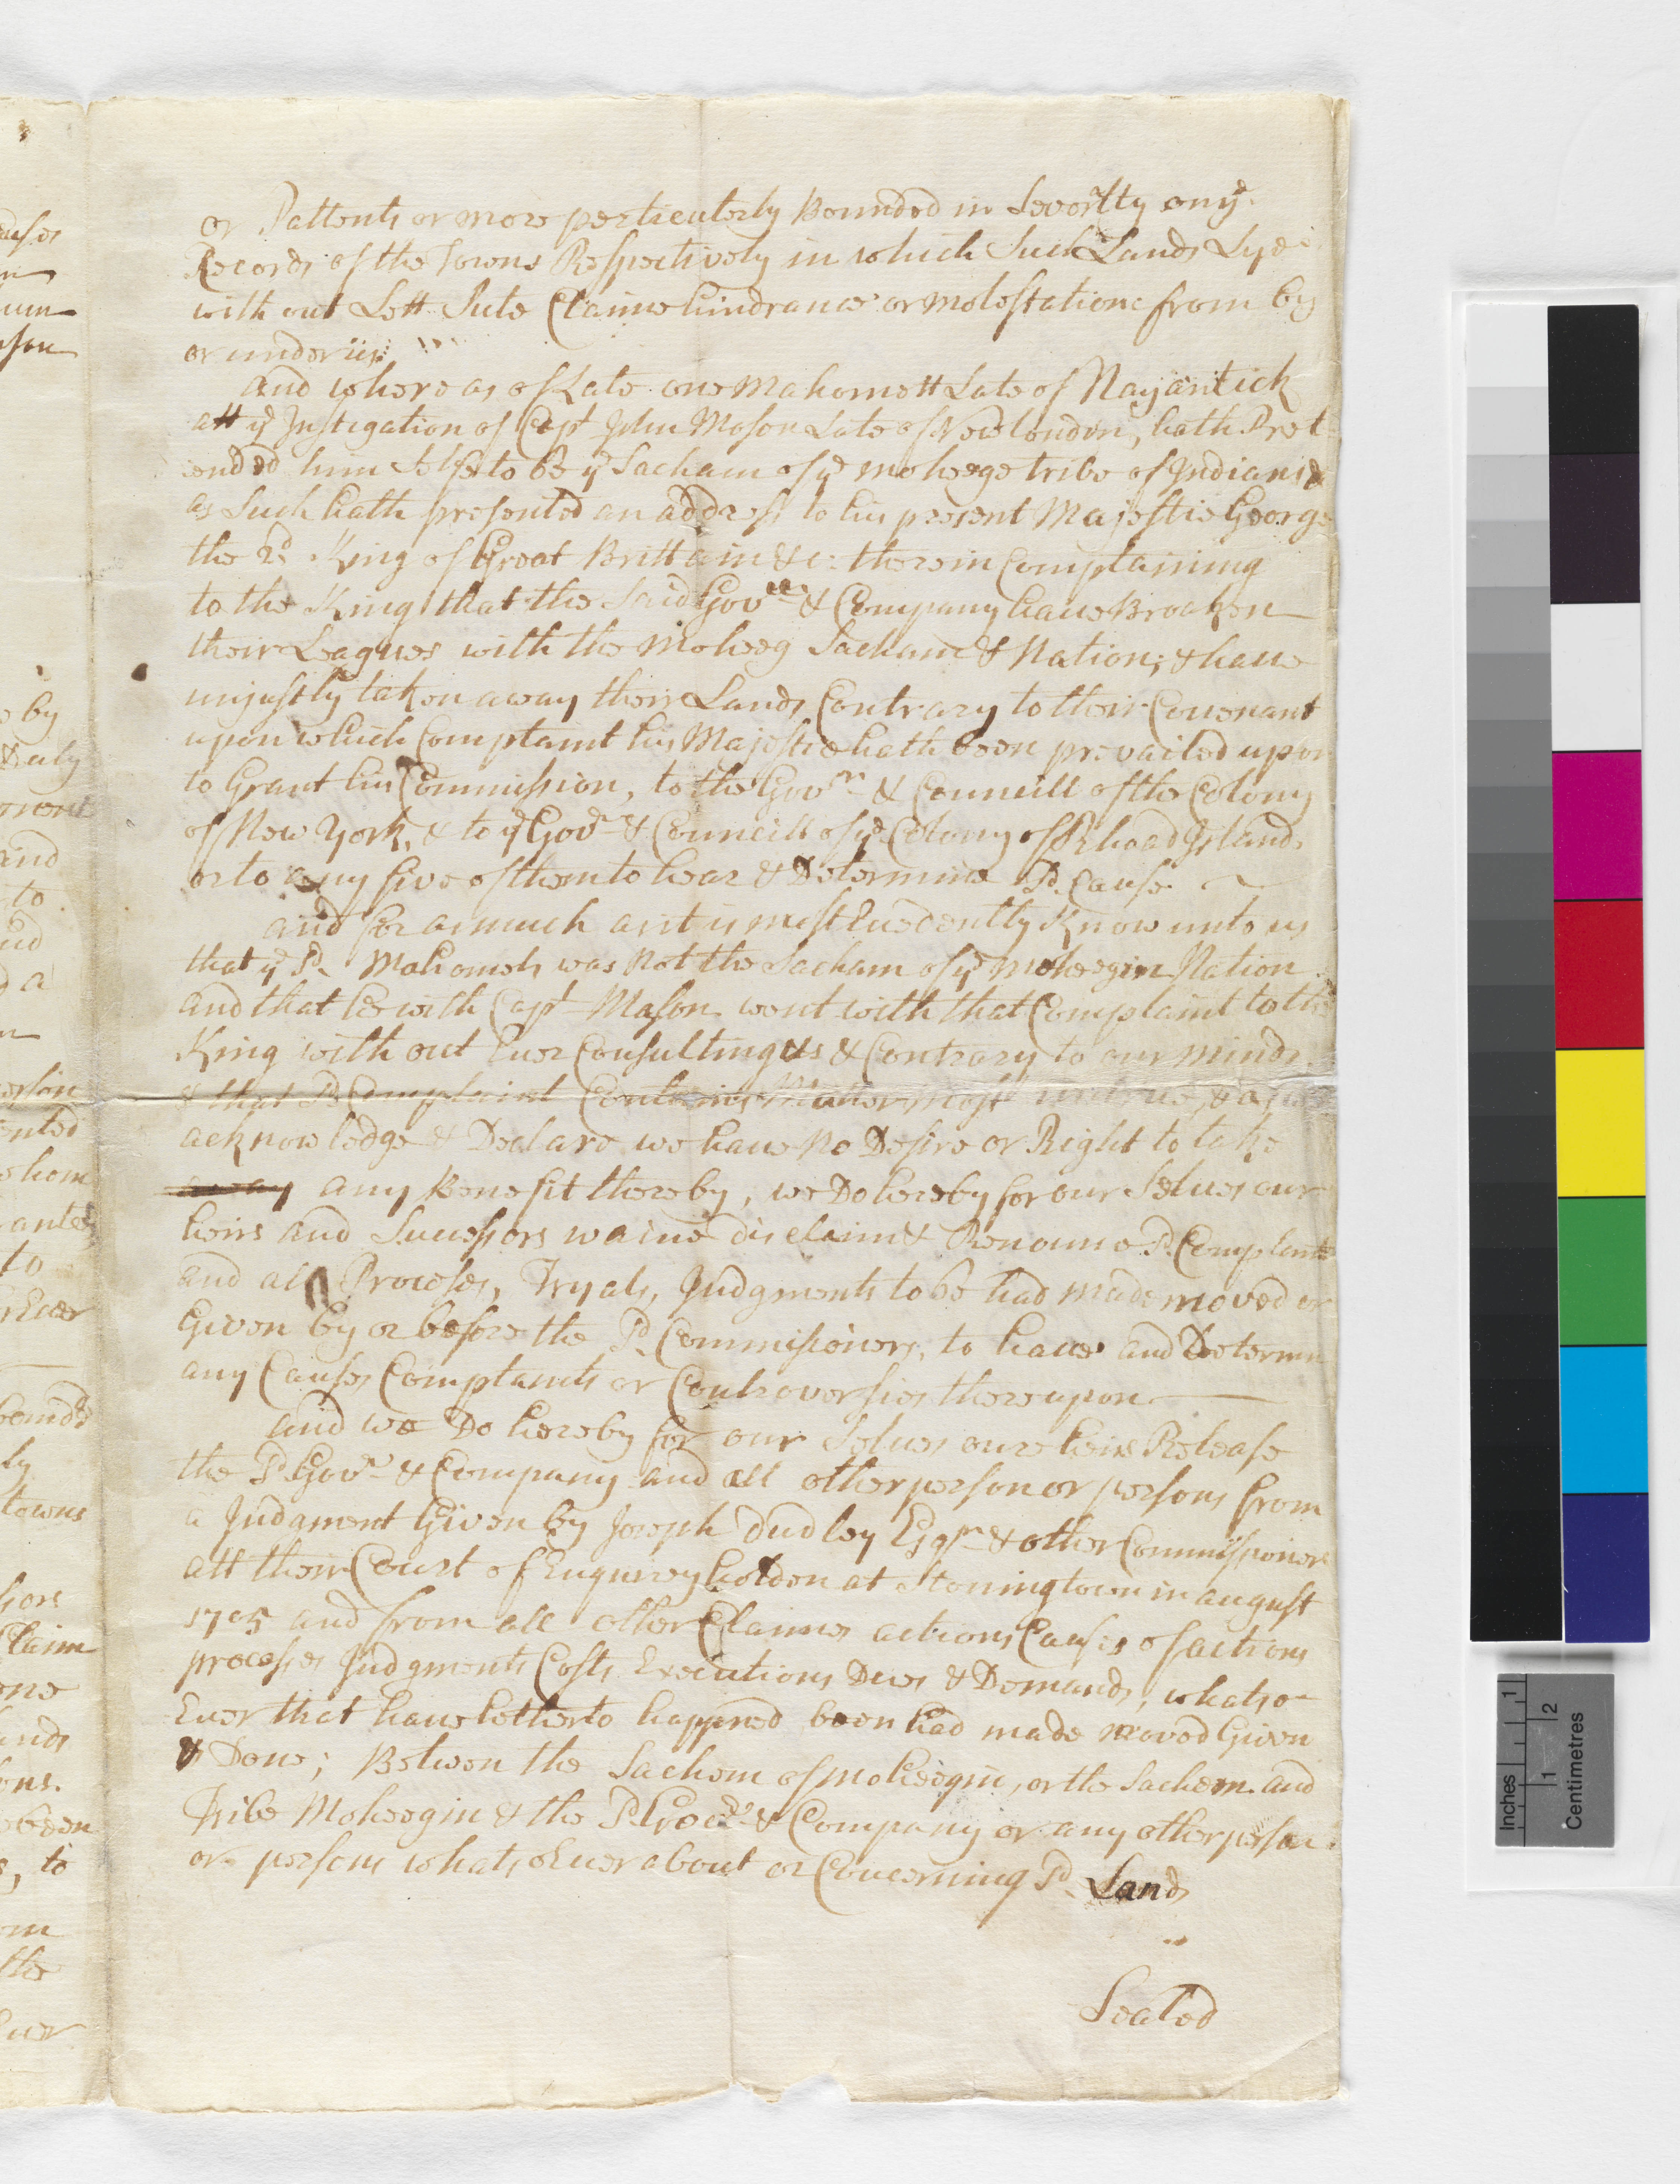 or Pattents or more perticulerly Bounded in Severlty on yᵉ
Records of the Towns Respectively in which Such Lands Lye
with out Lett Sute Claime hindrance or molestatione from by
or under us
And where as of Late one Mahomett Late of Nayantick
att yᵉ Instigation of Capᵗ John Mason Late of New london, hath Pret
ended him Selfe to be yᵉ Sacham of yᵉ moheege tribe of Indians &
as Such hath presented an address to his present Majestie George
the 2ᵈ King of Great Brittain &c: therein Complaining
to the King that the Said Govʳⁿ & Company haue Broaken
their Leagues with the moheeg Sacham & Nation; & haue
unjustly taken away their Lands Contrary to their Couenant
upon which Complaint his Majestie hath been prevailed upon
to Grant his Commission, to the Govʳⁿ & Councill of the Colony
of New York, & to yᵉ Govʳ & Councill of yᵉ Colony of Rhoad Island,
or to any five of them to hear & Determine sᵈ Cause
and for as much as it is most Euedently Know unto us
that yᵉ sᵈ Mahomets was not the Sacham of yᵉ moheegin Nation
and that he with Capᵗ Mason went with that Complaint to the
King with out Euer Consulting us & Contrary to our minds
& that sᵈ Complaint Contains Matter most untrue, & as we
acknowledge & Declare we haue no Desire or Right to take
away any Benefit thereby, we Do hereby for our Selues our
heirs and Sucessors waiue disclaim & Renounce sᵈ Complants
and all Proceses, Tryals, Judgments to be had made moved or
Given by or before the sᵈ Commissioners, to haue and Determin
any Causes Complants or Controversies thereupon
and we Do hereby for our Selues oure heirs Release
the sᵈ Govʳ & Company and all other person or persons from
a Judgment Given by Joseph dudley Esqʳ & other Commissioners
att their Court of Enquirey holden at Stonington in august
1705 and from all other Claimes actions Causes of actions
processes Judgments Costs Executions Dues & Demands, whatso
Euer that haue hetherto happined been had made moved Given
& Done; Betwen the Sachem of moheegin, or the Sachem and
Tribe Moheegin & the sᵈ Govʳ & Company or any other person
or persons whatsoEuer about or Concerning sᵈ Lands
Sealed
by
Duly
and
to
a
to
ly
towns
Claim
to
the